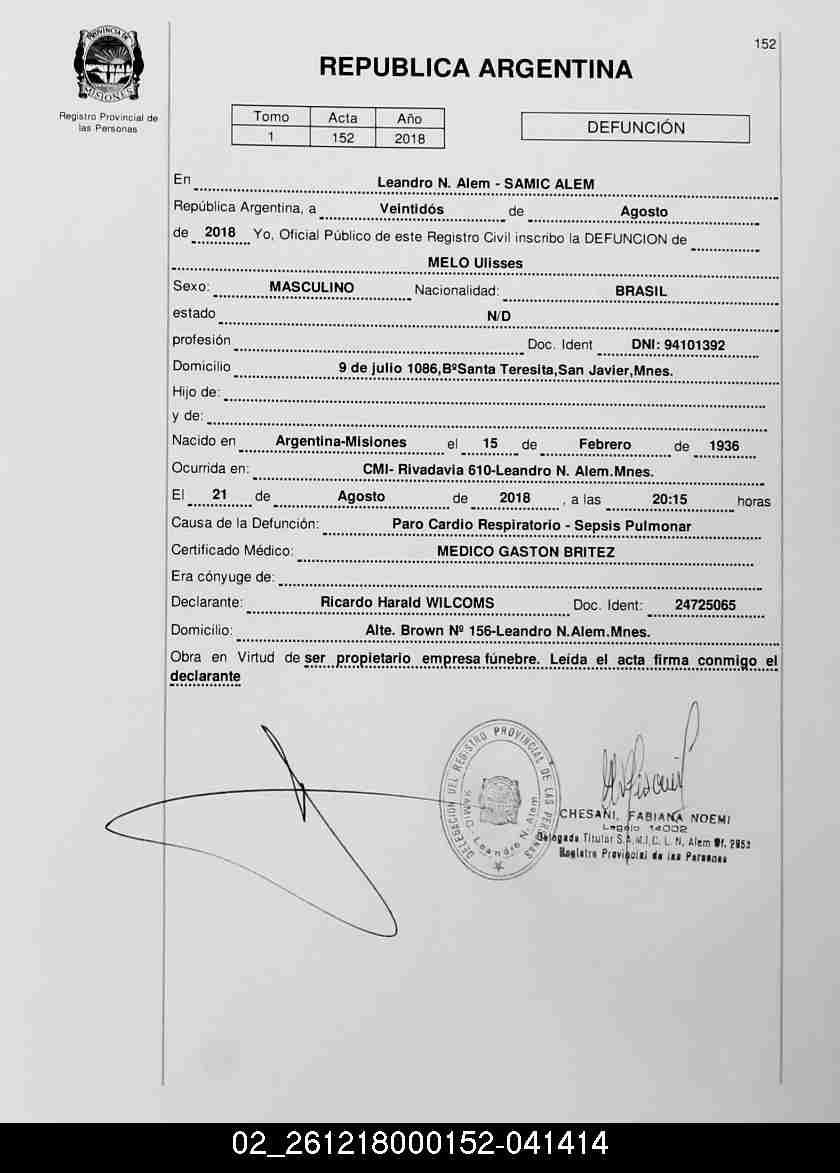 152
PROVINCIA DE
MISIONES
Registro Provincial de
las Personas
REPUBLICA ARGENTINA
Tomo Acta Año
1 152 2018
DEFUNCIÓN
En Leandro N. Alem - SAMIC ALEM
República Argentina, a Veintidós de Agosto
de 2018 Yo, Oficial Público de este Registro Civil inscribo la DEFUNCION de
MELO Ulisses
Sexo: MASCULINO Nacionalidad: BRASIL
estado N/D
profesión Doc. Ident DNI: 94101392
Domicilio 9 de julio 1086,BºSanta Teresita,San Javier,Mnes.
Hijo de:
y de:
Nacido en Argentina-Misiones el 15 de Febrero de 1936
Ocurrida en: CMI- Rivadavia 610-Leandro N. Alem.Mnes.
El 21 de Agosto de 2018 , a las 20:15 horas
Causa de la Defunción: Paro Cardio Respiratorio - Sepsis Pulmonar
Certificado Médico: MEDICO GASTON BRITEZ
Era cónyuge de:
Declarante: Ricardo Harald WILCOMS Doc. Ident: 24725065
Domicilio: Alte. Brown Nº 156-Leandro N.Alem.Mnes.
Obra en Virtud de ser propietario empresa fúnebre. Leída el acta firma conmigo el
declarante
DELEGACION DEL REGISTRO PROVINCIAL DE LAS PERSONAS
SAMIC - Leandro N. Alem
CHESANI, FABIANA NOEMI
Legajo 14002
Delegada Titular S.A.M.I.C. L. N. Alem Of. 2953
Registro Provincial de las Personas
02_261218000152-041414